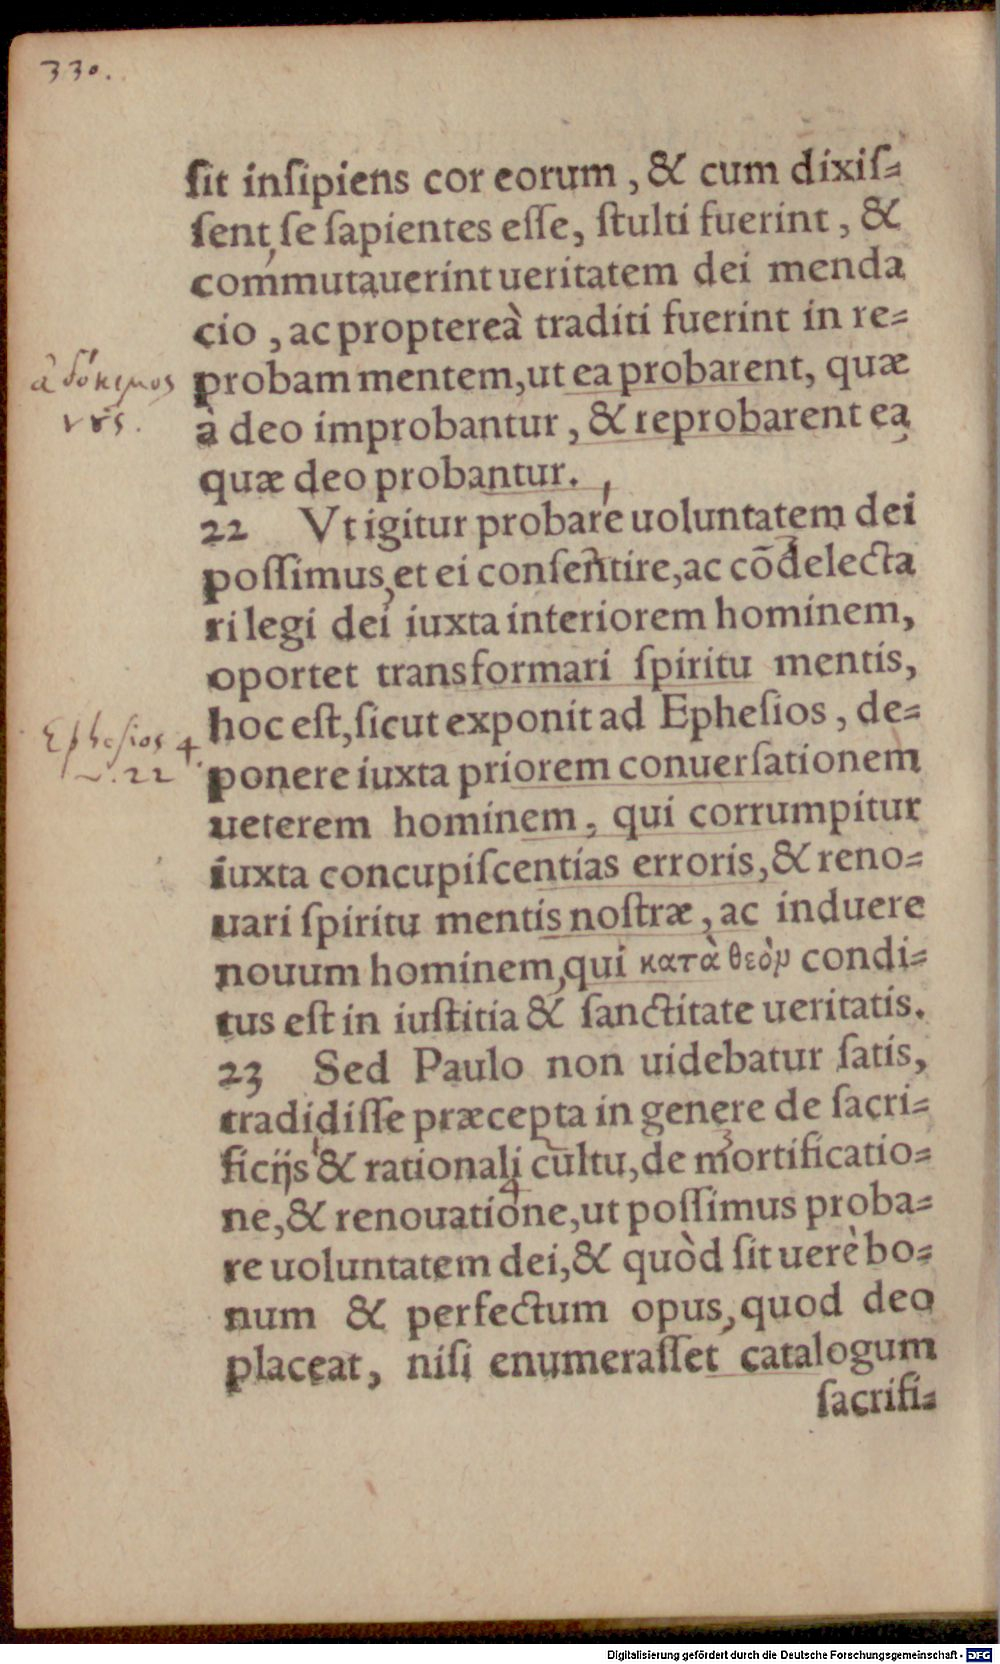 330.
ſit inſipiens cor eorum, & cum dixiſ=
ſent ſe ſapientes eſſe, ſtulti fuerint, &
commutauerint ueritatem dei menda
cio, ac propterea̍ traditi fuerint in re=
ἀδόκιμος
probam mentem, ut ea probarent, quæ
νȣς.
à deo improbantur, & reprobarent ea
quæ deo probantur.
22 Vt igitur probare uoluntatem dei
poſſimus, et ei conſentire, ac cōdelecta
ri legi dei iuxta interiorem hominem,
oportet transformari ſpiritu mentis,
Ephesios 4.
hoc eſt, ſicut exponit ad Epheſios, de=
v. 22
ponere iuxta priorem conuerſationem
ueterem hominem, qui corrumpitur
iuxta concupiſcentias erroris, & reno=
uari ſpiritu mentis noſtræ, ac induere
nouum hominem, qui κατὰ θεὸμ condi=
tus eſt in iuſtitia & ſanctitate ueritatis.
23 Sed Paulo non uidebatur ſatis,
tradidiſſe præcepta in genere de ſacri=
ficijs & rationali cultu, de mortificatio=
ne, & renouatione, ut poſſimus proba=
re uoluntatem dei, & quòd ſit uerè bo=
num & perfectum opus, quod deo
placeat, niſi enumeraſſet catalogum
ſacrifi=
Digitalisierung gefördert durch die Deutsche Forschungsgemeinschaft - DFG